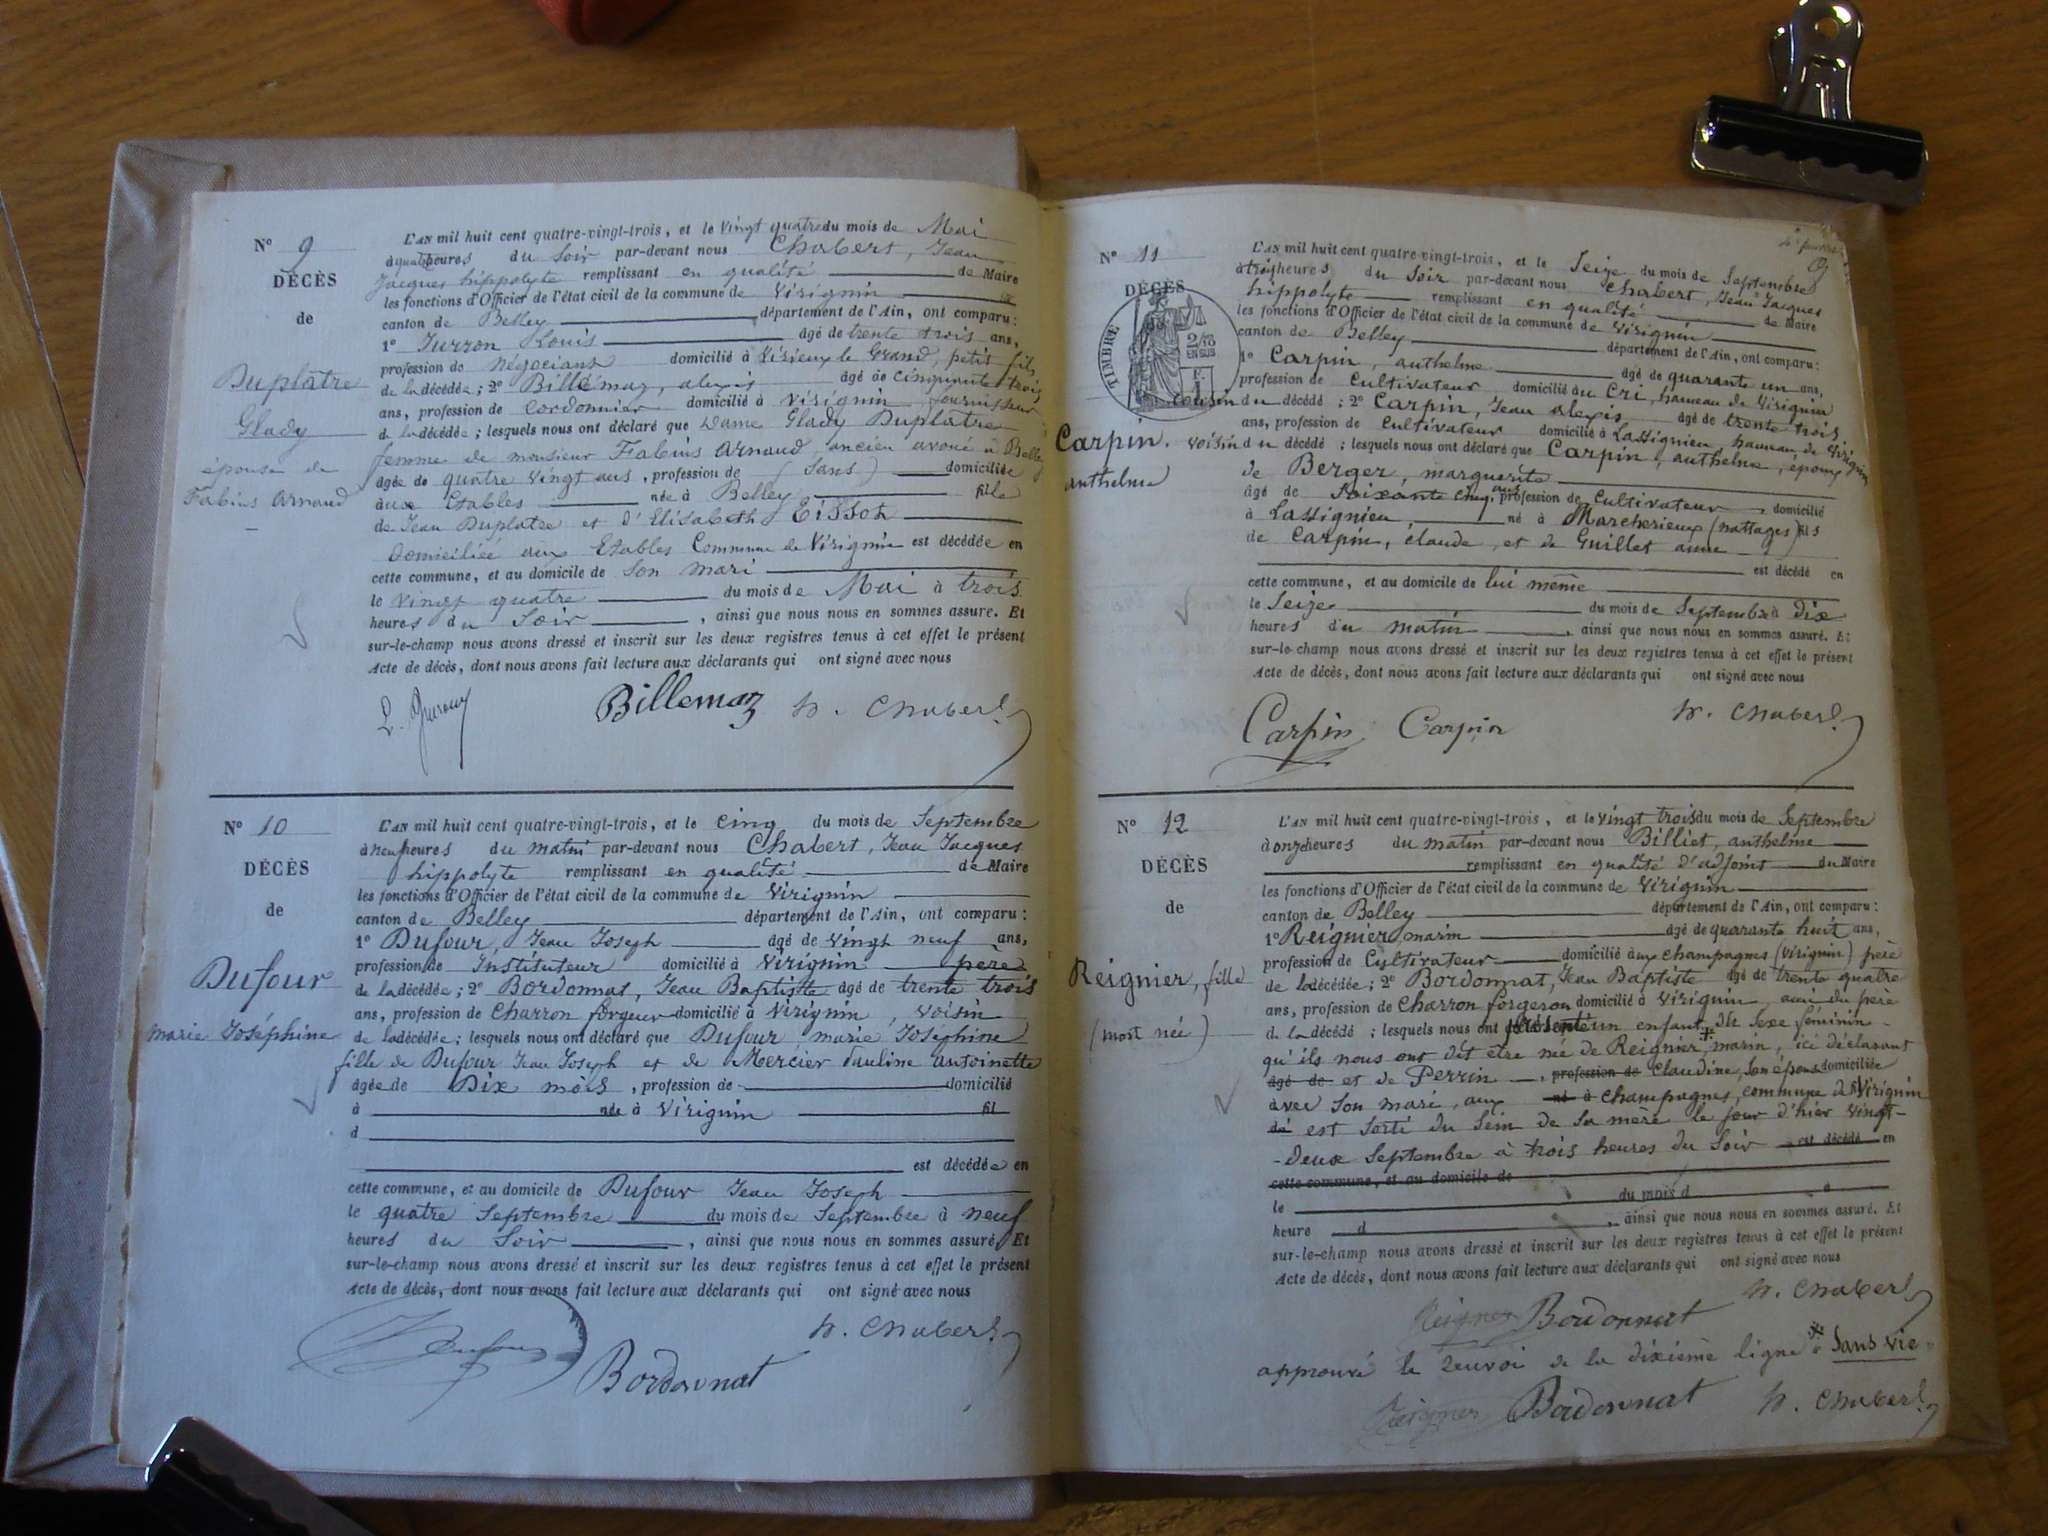 N° 9
DÉCÈS
de
Duplatre
Glady
épouse de
Fabius Arnaud
L'AN mil huit cent quatre-vingt-trois, et le vingt quatre du mois de Mai
à quatre heures du Soir par-devant nous Chabert, Jean
Jacques hippolyte remplissant en qualité de Maire
les fonctions d'Officier de l'état civil de la commune de Virignin
canton de Belley département de l'Ain, ont comparu :
1° Louis âgé de trente trois ans,
profession de négociant domicilié à Virieux le Grand, petit fils
de la décédée ; 2° Billemaz, alexis âgé de cinquante trois
ans, profession de cordonnier domicilié à Virignin fournisseur
de la décédée ; lesquels nous ont déclaré que Dame Glady Duplatre
femme de monsieur Fabius Arnaud, ancien avoué à Belley
âgée de quatre vingt ans, profession de (Sans) domiciliée
aux Etables née à Belley fille
de Jean Duplatre et d'Elisabeth Tissot
Domiciliée aux Etables Commune de Virignin est décédée en
cette commune, et au domicile de Son mari
le vingt quatre du mois de Mai à trois
heures du Soir, ainsi que nous nous en sommes assuré. Et
sur-le-champ nous avons dressé et inscrit sur les deux registres tenus à cet effet le présent
Acte de décès, dont nous avons fait lecture aux déclarants qui ont signé avec nous
Billemaz h. Chabert
N° 10
DÉCÈS
de
Dufour
Marie Joséphine
L'AN mil huit cent quatre-vingt-trois, et le cinq du mois de Septembre
à neuf heures du matin par-devant nous Chabert, Jean Jacques
hippolyte remplissant en qualité de Maire
les fonctions d'Officier de l'état civil de la commune de Virignin
canton de Belley département de l'Ain, ont comparu :
1° Dufour, Jean Joseph âgé de vingt neuf ans,
profession de Instituteur domicilié à Virignin père
de la décédée ; 2° Bordonnat, Jean Baptiste âgé de trente trois
ans, profession de Charron forgeur domicilié à Virignin, voisin
de la décédée ; lesquels nous ont déclaré que Dufour, marie Joséphine
fille de Dufour Jean Joseph et de Mercier Pauline antoinette
âgée de Dix mois, profession de domicilié
à née à Virignin fil
d
est décédée en
cette commune, et au domicile de Dufour Jean Joseph
le quatre Septembre du mois de Septembre à neuf
heures du Soir, ainsi que nous nous en sommes assuré. Et
sur-le-champ nous avons dressé et inscrit sur les deux registres tenus à cet effet le présent
Acte de décès, dont nous avons fait lecture aux déclarants qui ont signé avec nous
h. Chabert
Dufour
Bordonnat
N° 11
DÉCÈS
TIMBRE
2/10
EN SUS
Carpin.
anthelme
L'AN mil huit cent quatre-vingt-trois, et le Seize du mois de Septembre
à trois heures du Soir par-devant nous Chabert, Jean Jacques
hippolyte remplissant en qualité de Maire
les fonctions d'Officier de l'état civil de la commune de Virignin
canton de Belley département de l'Ain, ont comparu :
1° Carpin, anthelme âgé de quarante un ans,
profession de Cultivateur domicilié au Cri, hameau de Virignin
cousin du décédé ; 2° Carpin, Jean alexis âgé de trente trois
ans, profession de Cultivateur domicilié à Lassignieu, hameau de Virignin
voisin du décédé ; lesquels nous ont déclaré que Carpin, anthelme, époux
de Berger, marguerite
âgé de Soixante cinq ans, profession de Cultivateur, domicilié
à Lassignieu, né à Marcherieux (nattages) fils
de Carpin, claude, et de Guillet anne
est décédé en
cette commune, et au domicile de lui même
le Seize du mois de Septembre à Dix
heures du matin, ainsi que nous nous en sommes assuré. Et
sur-le-champ nous avons dressé et inscrit sur les deux registres tenus à cet effet le présent
Acte de décès, dont nous avons fait lecture aux déclarants qui ont signé avec nous
Carpin Carpin h. Chabert
N° 12
DÉCÈS
de
Reignier, fille
(mort née)
L'AN mil huit cent quatre-vingt-trois, et le vingt trois du mois de Septembre
à onze heures du matin par-devant nous Billiet, anthelme
remplissant en qualité d'adjoint du Maire
les fonctions d'Officier de l'état civil de la commune de Virignin
canton de Belley département de l'Ain, ont comparu :
1° Reignier, marin âgé de quarante huit ans,
profession de Cultivateur domicilié aux champagnes (Virignin) père
de la décédée ; 2° Bordonnat, Jean Baptiste âgé de trente quatre
ans, profession de Charron forgeron domicilié à Virignin, ami du père
de la décédé ; lesquels nous ont présenté un enfant * du Sexe féminin
qu'ils nous ont dit être née de Reignier, marin, ici déclarant
âgé de et de Perrin, profession de Claudine, son épouse domiciliée
avec Son mari, aux né à champagnes, commune de Virignin
de est sorti du Sein de Sa mère le jour d'hier vingt-
-Deux Septembre à trois heures du Soir est décédé en
cette commune, et au domicile de
le du mois d à
heure d, ainsi que nous nous en sommes assuré. Et
sur-le-champ nous avons dressé et inscrit sur les deux registres tenus à cet effet le présent
Acte de décès, dont nous avons fait lecture aux déclarants qui ont signé avec nous
Reignier Bordonnat h. Chabert
approuvé le renvoi de la dixième ligne * Sans vie
Reignier Bordonnat h. Chabert